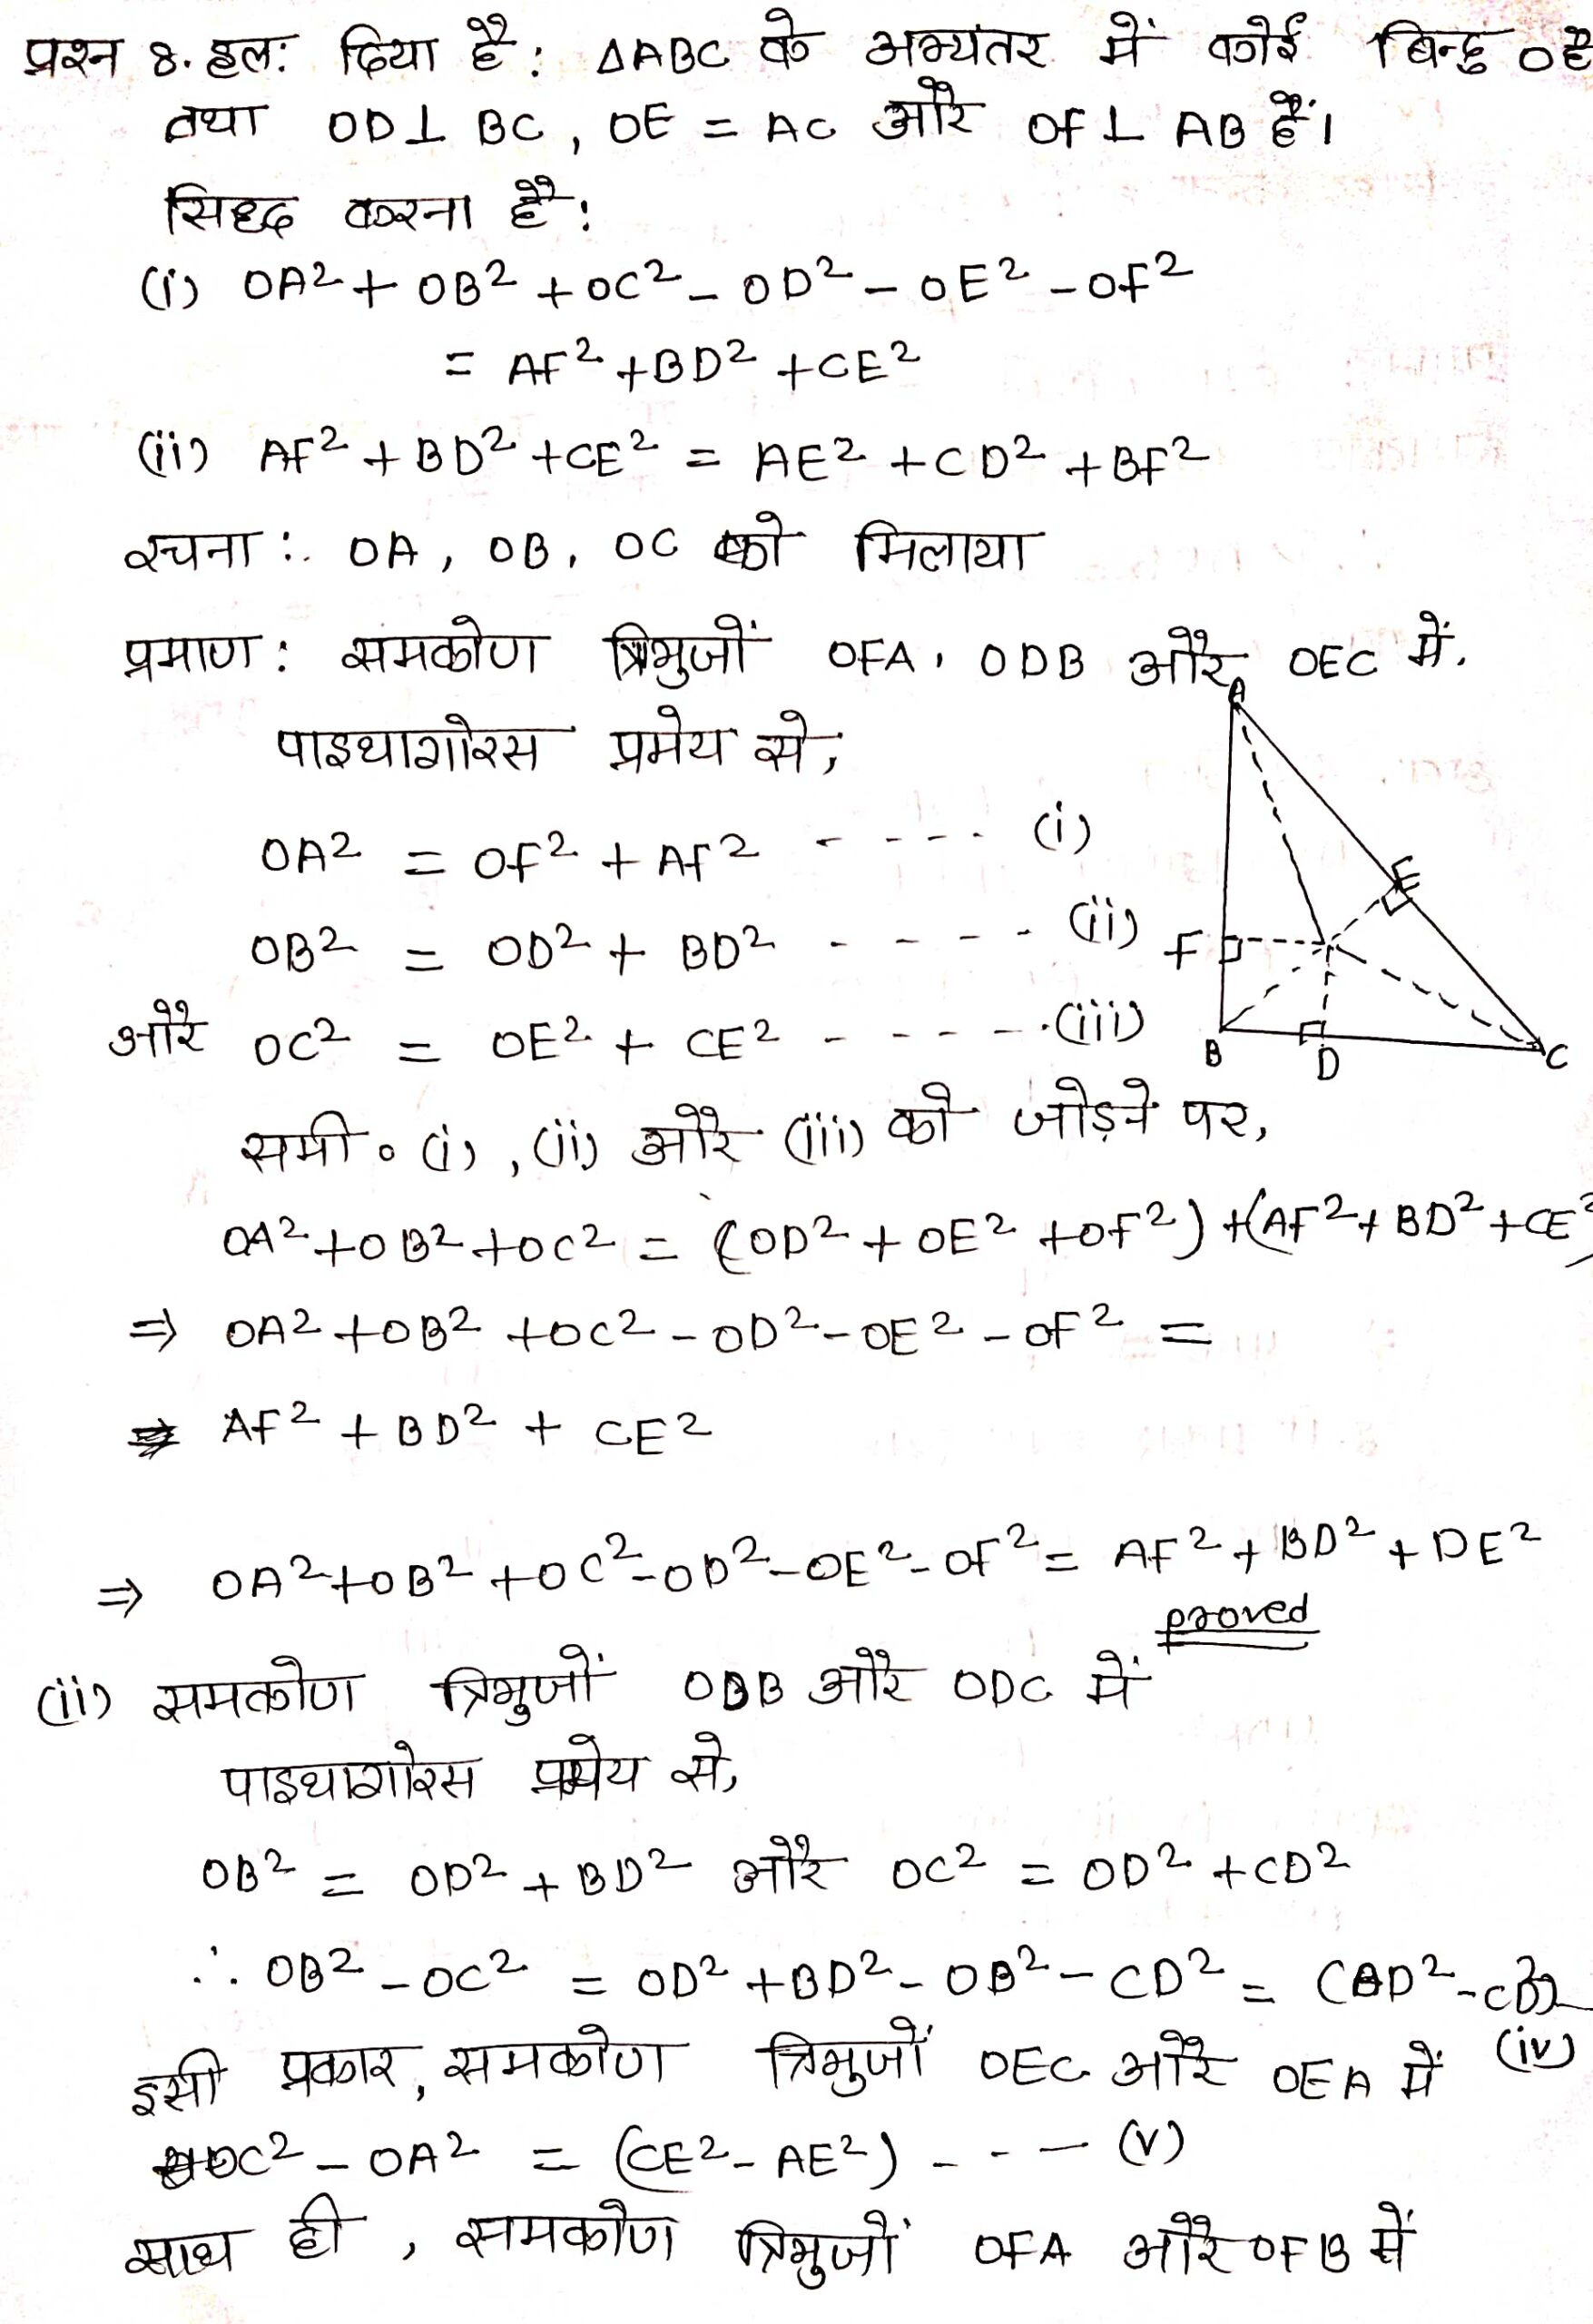 प्रश्न 8. हल: दिया है: ΔABC के अभ्यंतर में कोई बिन्दु O है
तथा OD⊥ BC, OE = AC और OF ⊥ AB हैं।
सिद्ध करना है:
(i) OA² + OB² + OC² - OD² - OE² - OF²
= AF² + BD² + CE²
(ii) AF² + BD² + CE² = AE² + CD² + BF²
रचना: OA, OB, OC को मिलाया
प्रमाण: समकोण त्रिभुजों OFA, ODB और OEC में,
पाइथागोरस प्रमेय से,
OA² = OF² + AF² ---- (i)
OB² = OD² + BD² ---- (ii)
और OC² = OE² + CE² ---- (iii)
A
E
F
B
D
C
समी० (i), (ii) और (iii) को जोड़ने पर,
OA² + OB² + OC² = (OD² + OE² + OF²) + (AF² + BD² + CE²)
⇒ OA² + OB² + OC² - OD² - OE² - OF² =
AF² + BD² + CE²
⇒ OA² + OB² + OC² - OD² - OE² - OF² = AF² + BD² + DE²
proved
(ii) समकोण त्रिभुजों ODB और ODC में
पाइथागोरस प्रमेय से,
OB² = OD² + BD² और OC² = OD² + CD²
∴ OB² - OC² = OD² + BD² - OD² - CD² = (BD² - CD²)
(iv)
इसी प्रकार, समकोण त्रिभुजों OEC और OEA में
OC² - OA² = (CE² - AE²) --- (v)
साथ ही, समकोण त्रिभुजों OFA और OFB में